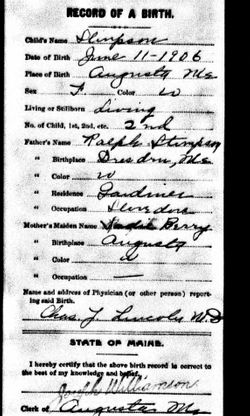 RECORD OF A BIRTH.
Child's Name Stimpson
Date of Birth June 11-1906
Place of Birth Augusta Me
Sex F. Color W
Living or Stillborn Living
No. of Child, 1st, 2nd, etc. 2nd
Father's Name Ralph Stimpson
" Birthplace Dresden, Me
" Color W
" Residence Gardiner
" Occupation
Mother's Maiden Name Berry
" Birthplace Augusta
" Color W
" Occupation —
Name and address of Physician (or other person) report-
ing said Birth.
Chas. J. Lincoln M.D
STATE OF MAINE.
I hereby certify that the above birth record is correct to
the best of my knowledge and belief.
Joseph Williamson
Clerk of Augusta Me